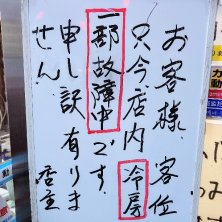 お客様 客位
只今店内 冷房
一部故障中です
申し訳有りま
せん 店主